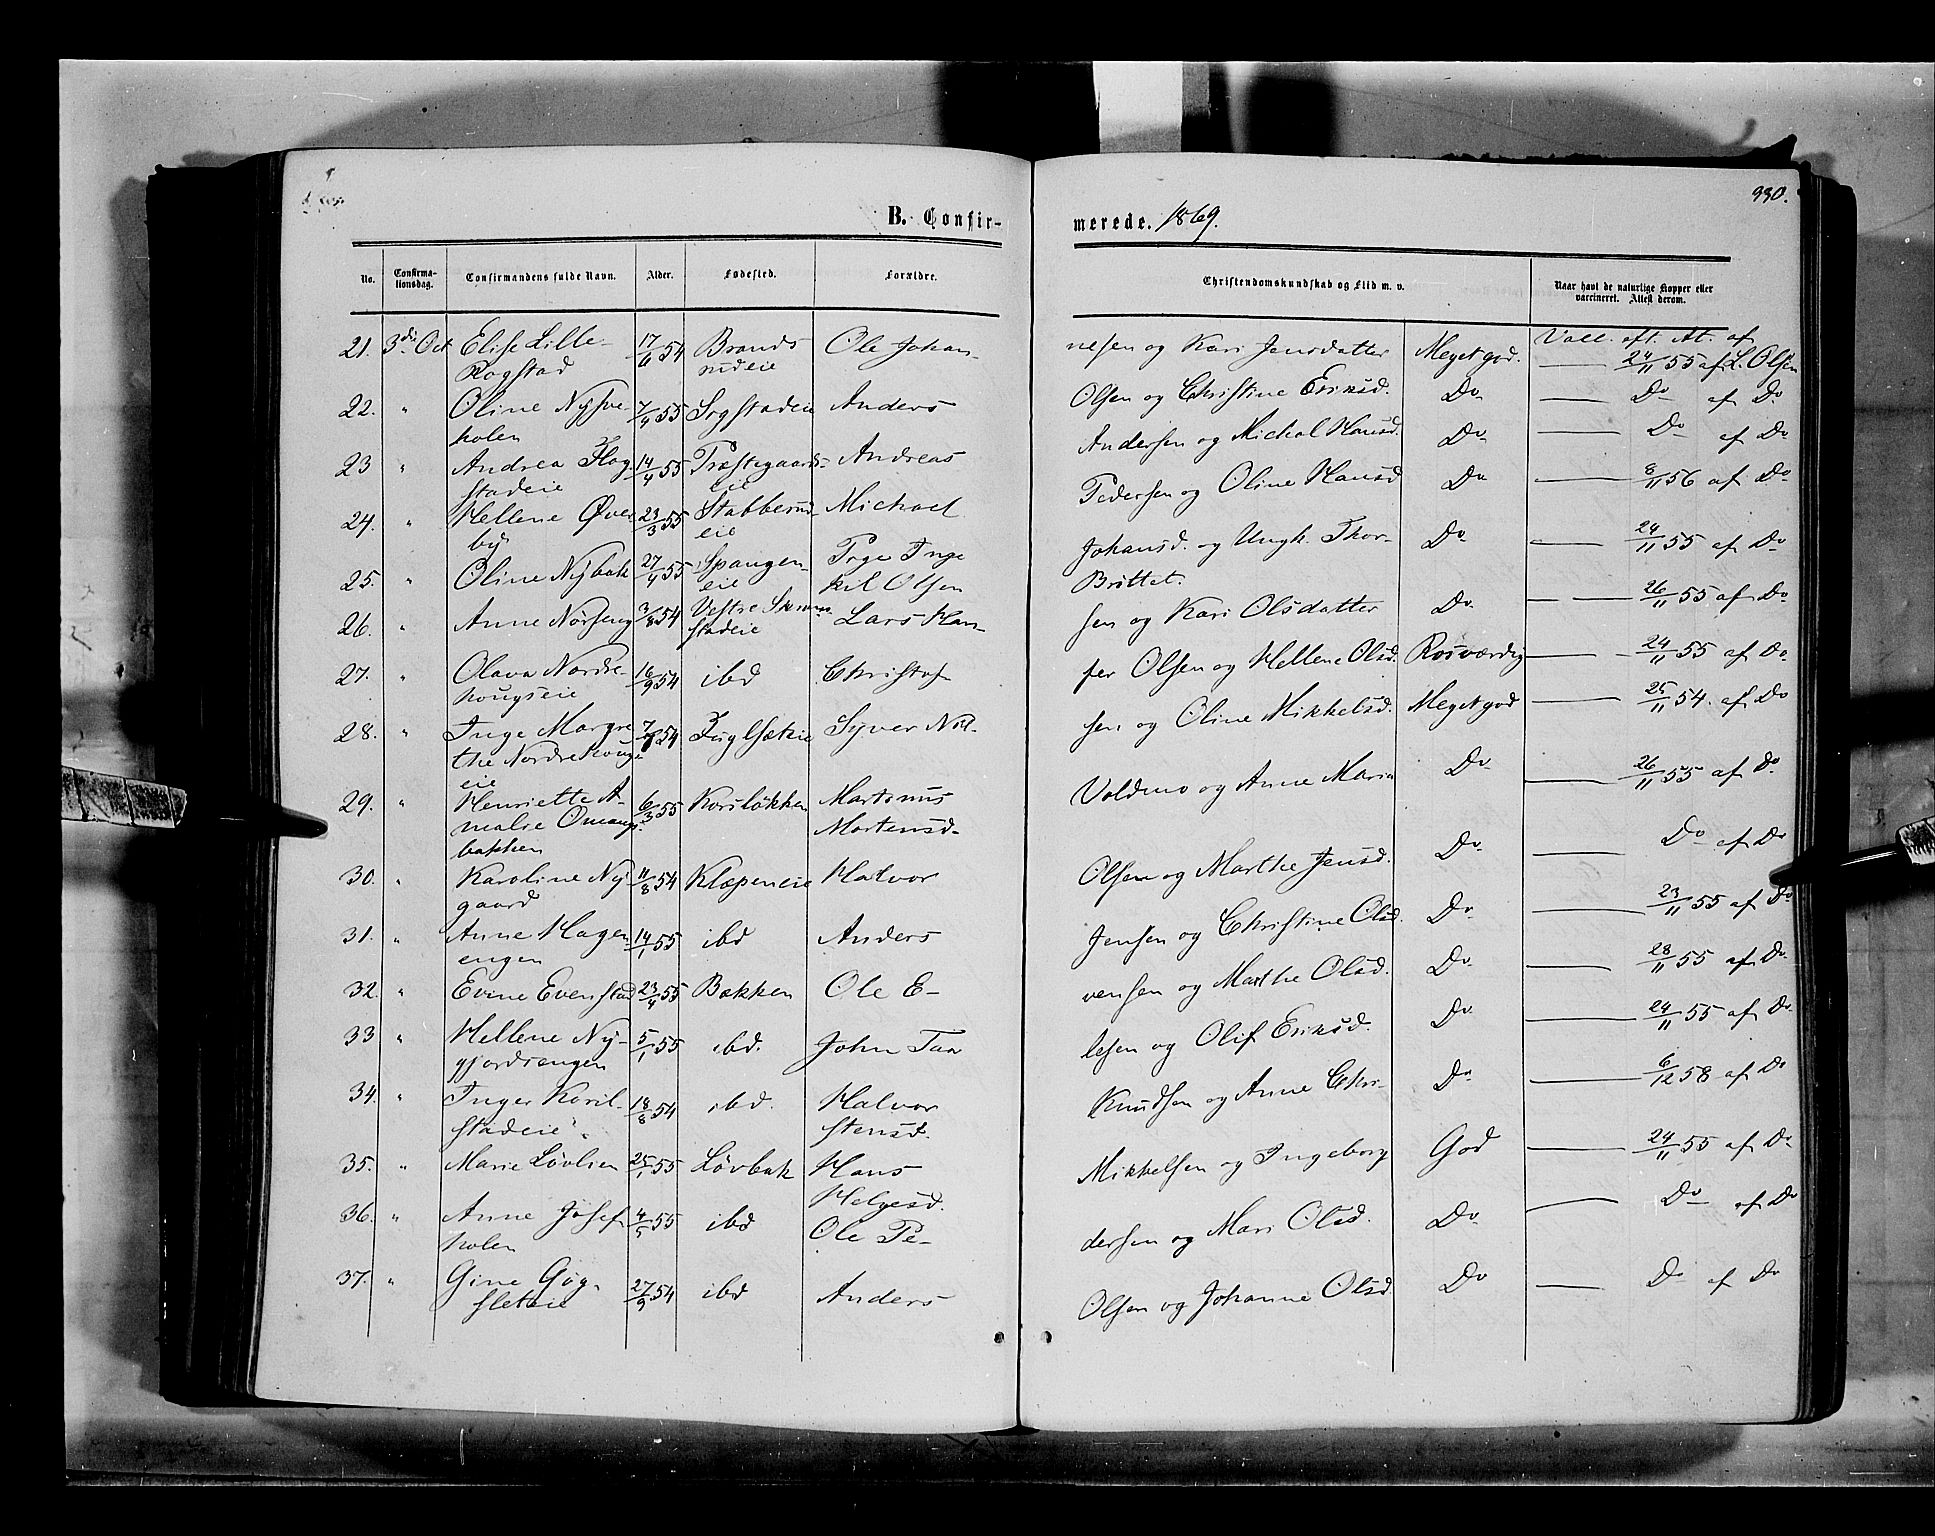 B. Confir-
merede. 1869.
330.
No.
Confirma-
tionsdag.
Confirmandens fulde Navn.
Alder.
Fødested.
Forældre.
Christendomskundskab og Flid m. v.
Naar havt de naturlige Kopper eller
vaccineret. Attest derom.
21. 3die Oct Elise Lille- 17/6 54 Brands Ole Johan- nesen og Kari Jensdatter Meget god. Vacc. eft. At. af
Rogstad rudeie 24/11 55 af L. Olsen
22. " Oline Nysve- 7/4 55 Sogstadeie Anders Olsen og Christine Eriksd. Do Do af Do
holen
23 " Andrea Flag- 14/4 55 Præstegaards- Andreas Andersen og Michol Hansd. Do Do af Do
stadeie eie
24. " Hellene Øver 23/3 55 Stabberud- Michael Pedersen og Oline Hansd Do 8/11 56 af Do
by eie
25. " Oline Nybak 27/4 55 Spangen- Pige Inge Johansd. og Ungk. Thor- Do 24/11 55 af Do
eie kil Olsen Brøttet.
26. " Anne Nørseng 3/8 54 Vestre Lars Han- sen og Kari Olsdatter Do 26/11 55 af Do
stadeie
27. " Olava Nordre- 16/9 54 ibd Christof fer Olsen og Hellene Olsd. Rosværdig 24/11 55 af Do
hougseie
28. " Inge Margre 54 Fuglseteie Syver Nil- sen og Oline Mikkelsd. Meget god 25/11 54. af Do
the Nordrehougs
eie
29. " Henriette A- 6/3 55 Korsløkken Martinus Voldmo og Anne Maria Do 26/11 55 af Do
malie Omangs- Mortensd.
bakken
30. " Karoline Ny 11/8 54 Klæpeneie Halvor Olsen og Marthe Jensd. Do Do af Do
gaard
31. " Anne Hagen 14/1 55 ibd Anders Jensen og Christine Olsd. Do 23/11 55 af Do
engen
32. " Evine Evenstad 23/4 55 Bækken Ole E- vensen og Marthe Olsd. Do 28/11 55 af Do
33 " Hellene Ny- 5/1 55 ibd. John Tan lesen og Olif Eriksd. Do 24/11 55 af Do
gjordsengen
34. " Inger Koril- 18/8 54 ibd. Halvor Knudsen og Anne Chri- Do 6/12 58 af Do
stadeie stensd.
35. " Marie Løvlien 25/1 55 Løvbak Hans Mikkelsen og Ingeborg God 24/11 55 af Do
Helgesd.
36. " Anne Josef 4/5 55 ibd Ole Pe- dersen og Mari Olsd. Do Do af Do
holen
37. " Gine Gøg- 27/9 54 ibd Anders Olsen og Johanne Olsd. Do Do af Do
sleteie